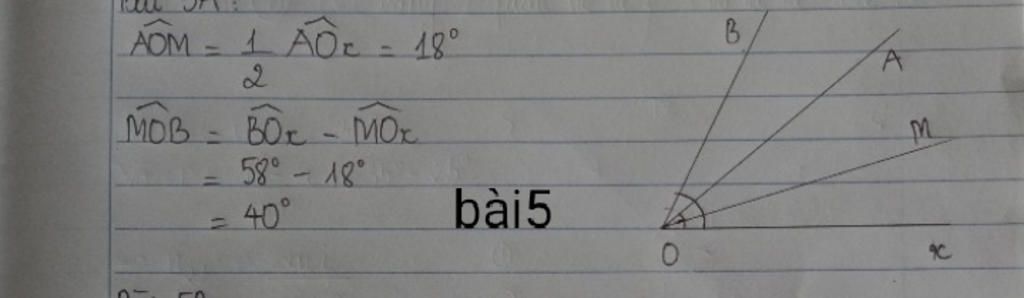 AOM = 1/2 AOx = 18°
MOB = BOx - MOx
= 58° - 18°
= 40°
bài5
B
A
M
O
x